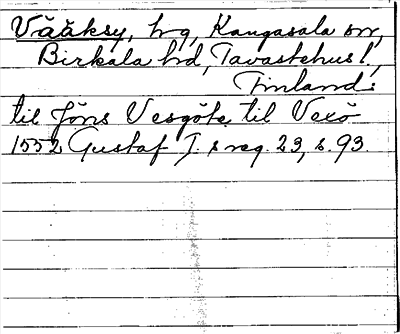 Vääksy, hg, Kangasala sn,
Birkala hd, Tavastehus l.,
Finland:
til Jöns Vesgöte til Vexö
1552 Gustaf I.s reg. 23, s. 93.